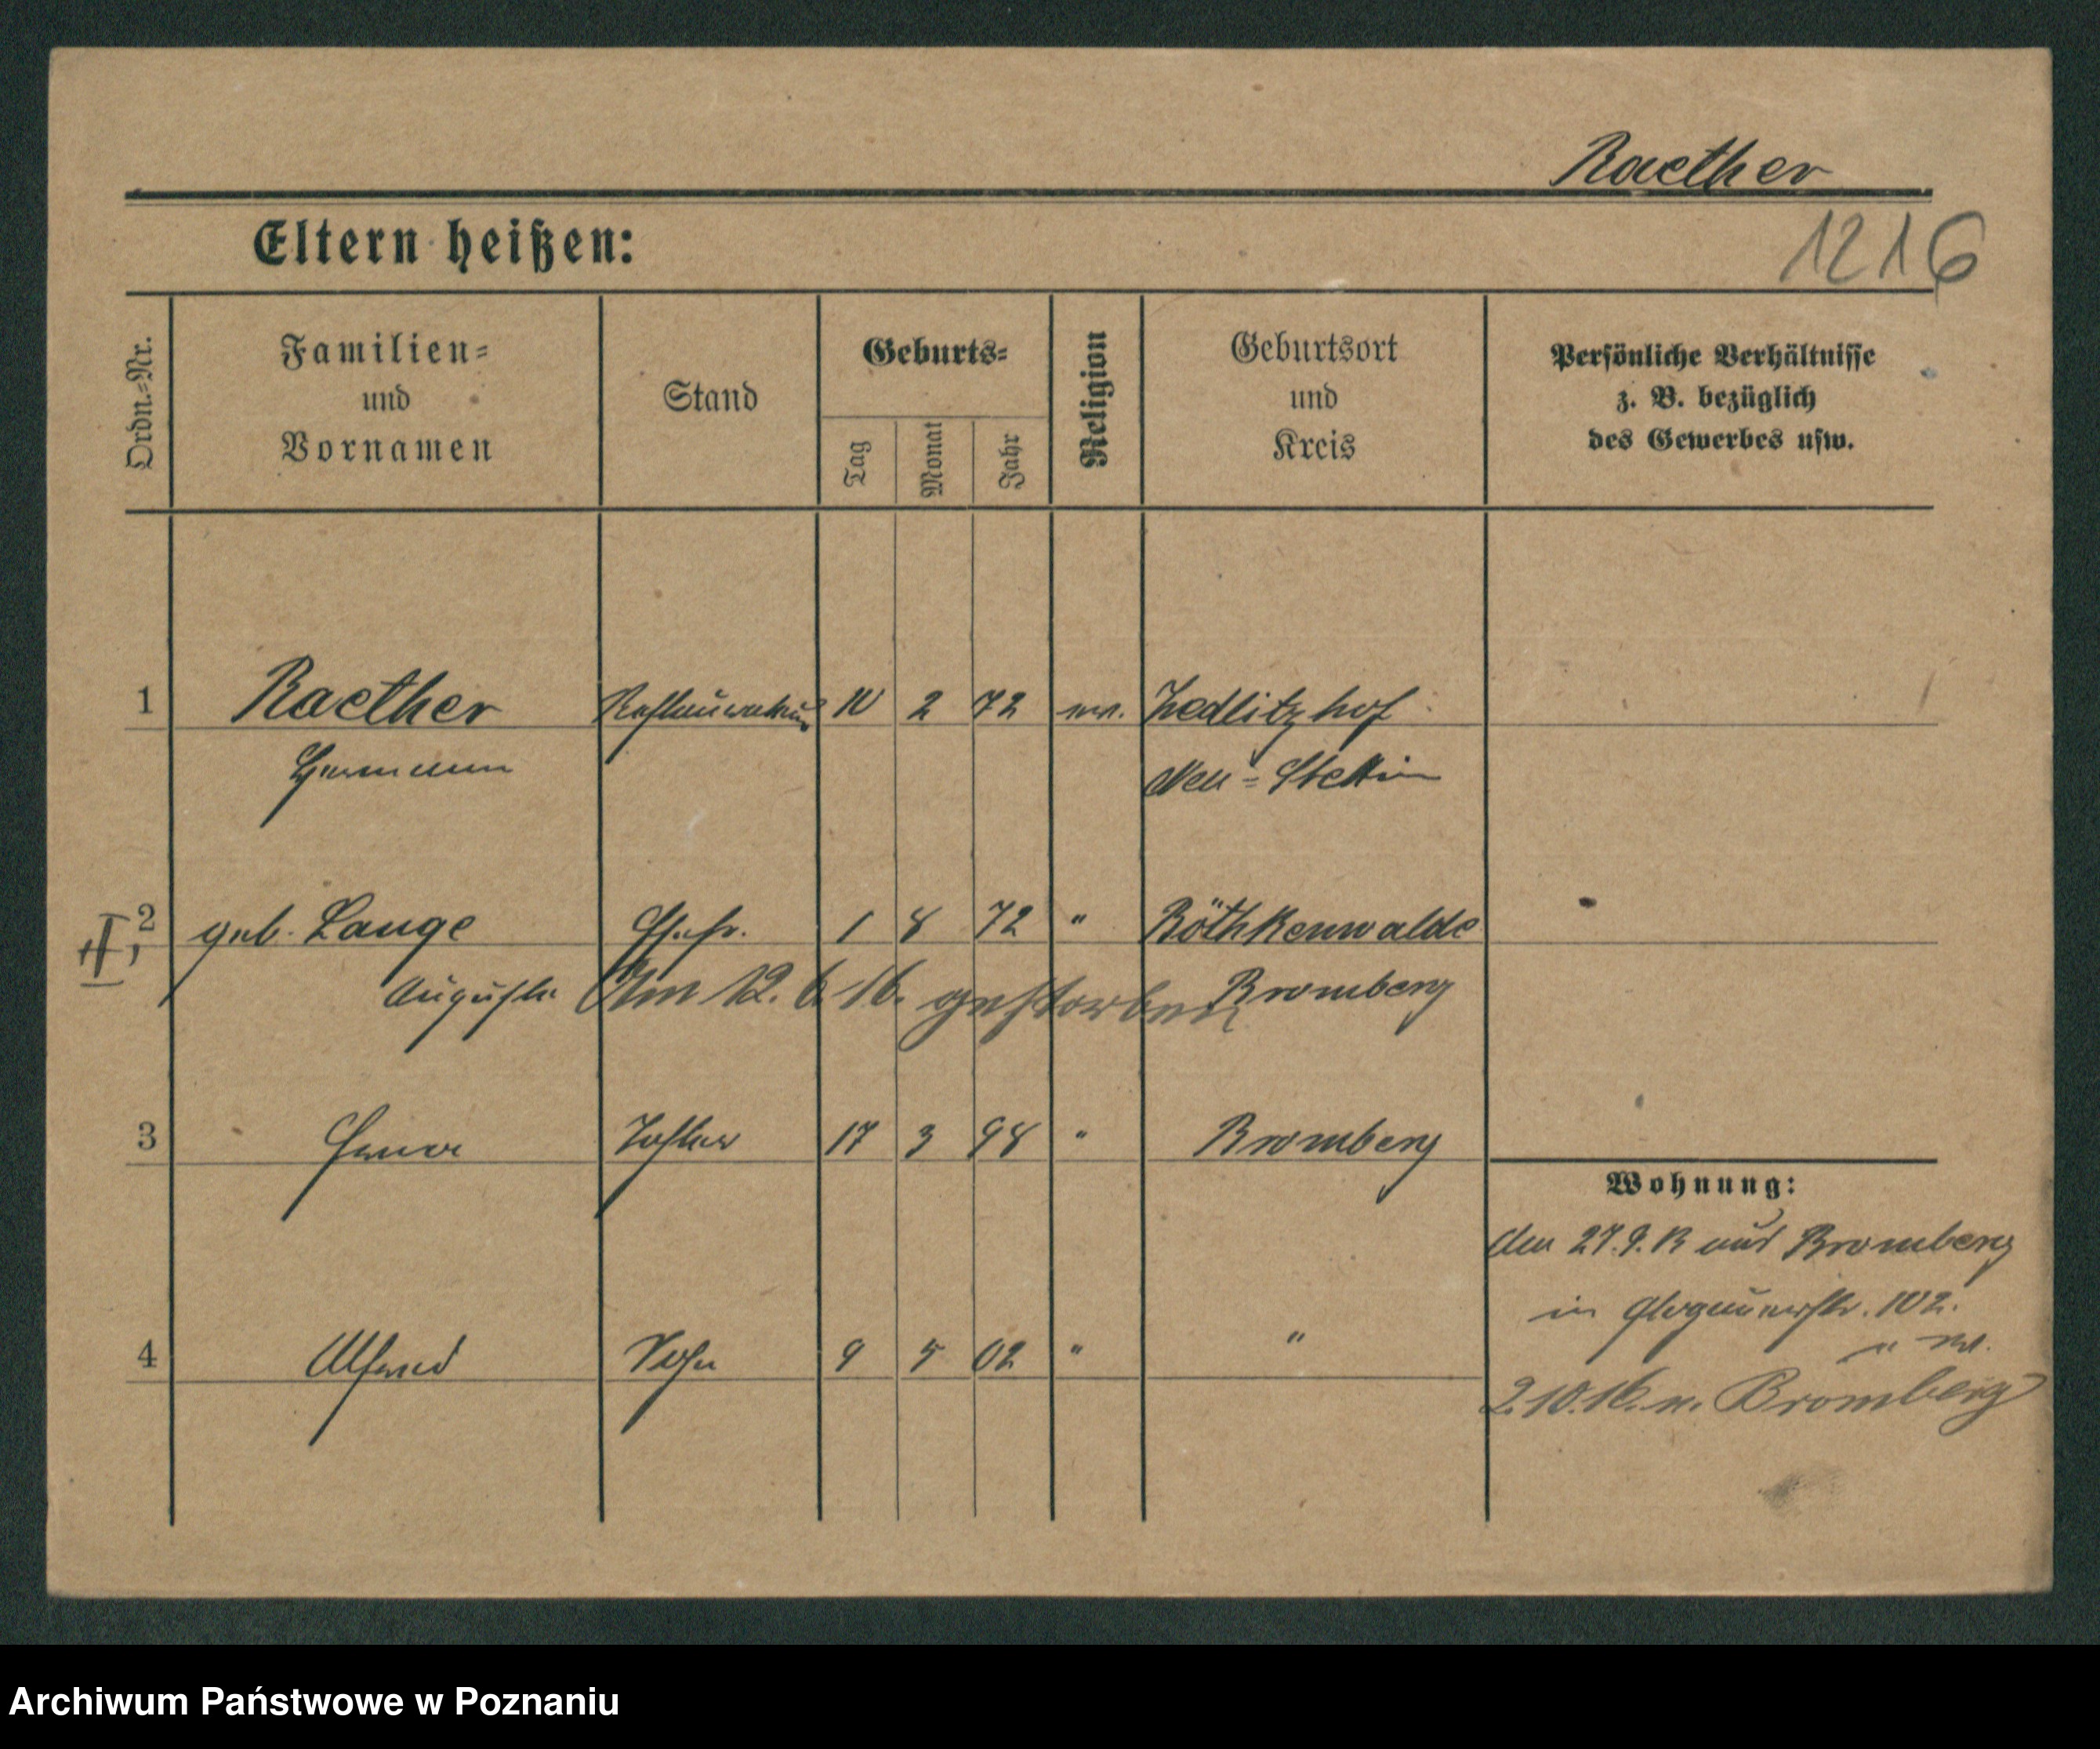 Raether
1216
Eltern heißen:
Ordn.=Nr.
Familien=
und
Vornamen
Stand
Geburts=
Tag
Monat
Jahr
Religion
Geburtsort
und
Kreis
Persönliche Verhältnisse
z. B. bezüglich
des Gewerbes usw.
1 Raether Restaurateur 10 2 72 ev. Zedlitzhof
Hermann Neu=Stettin
2 geb. Lange Ehefr. 1 8 72 " Röthkenwalde
II,
Auguste Am 12. 6. 16. gestorben Bromberg
3 Erna Tochter 17 3 98 " Bromberg
Wohnung:
den 27.9.13 aus Bromberg
in Glogauerstr. 102.
4 Alfred Sohn 9 5 02 " "
2.10.16. n. Bromberg
Archiwum Państwowe w Poznaniu